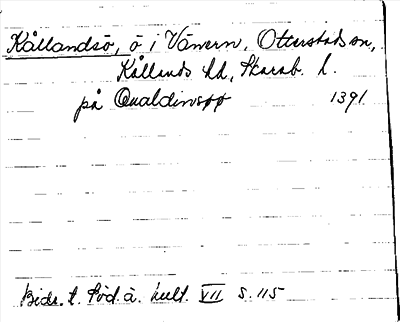 Kållandsö, ö i Vänern, Otterstads sn,
Kållands hd, Skarab. l.
på Qualdinsøø 1391
Bidr. t. Söd. ä. kult. VII s. 115